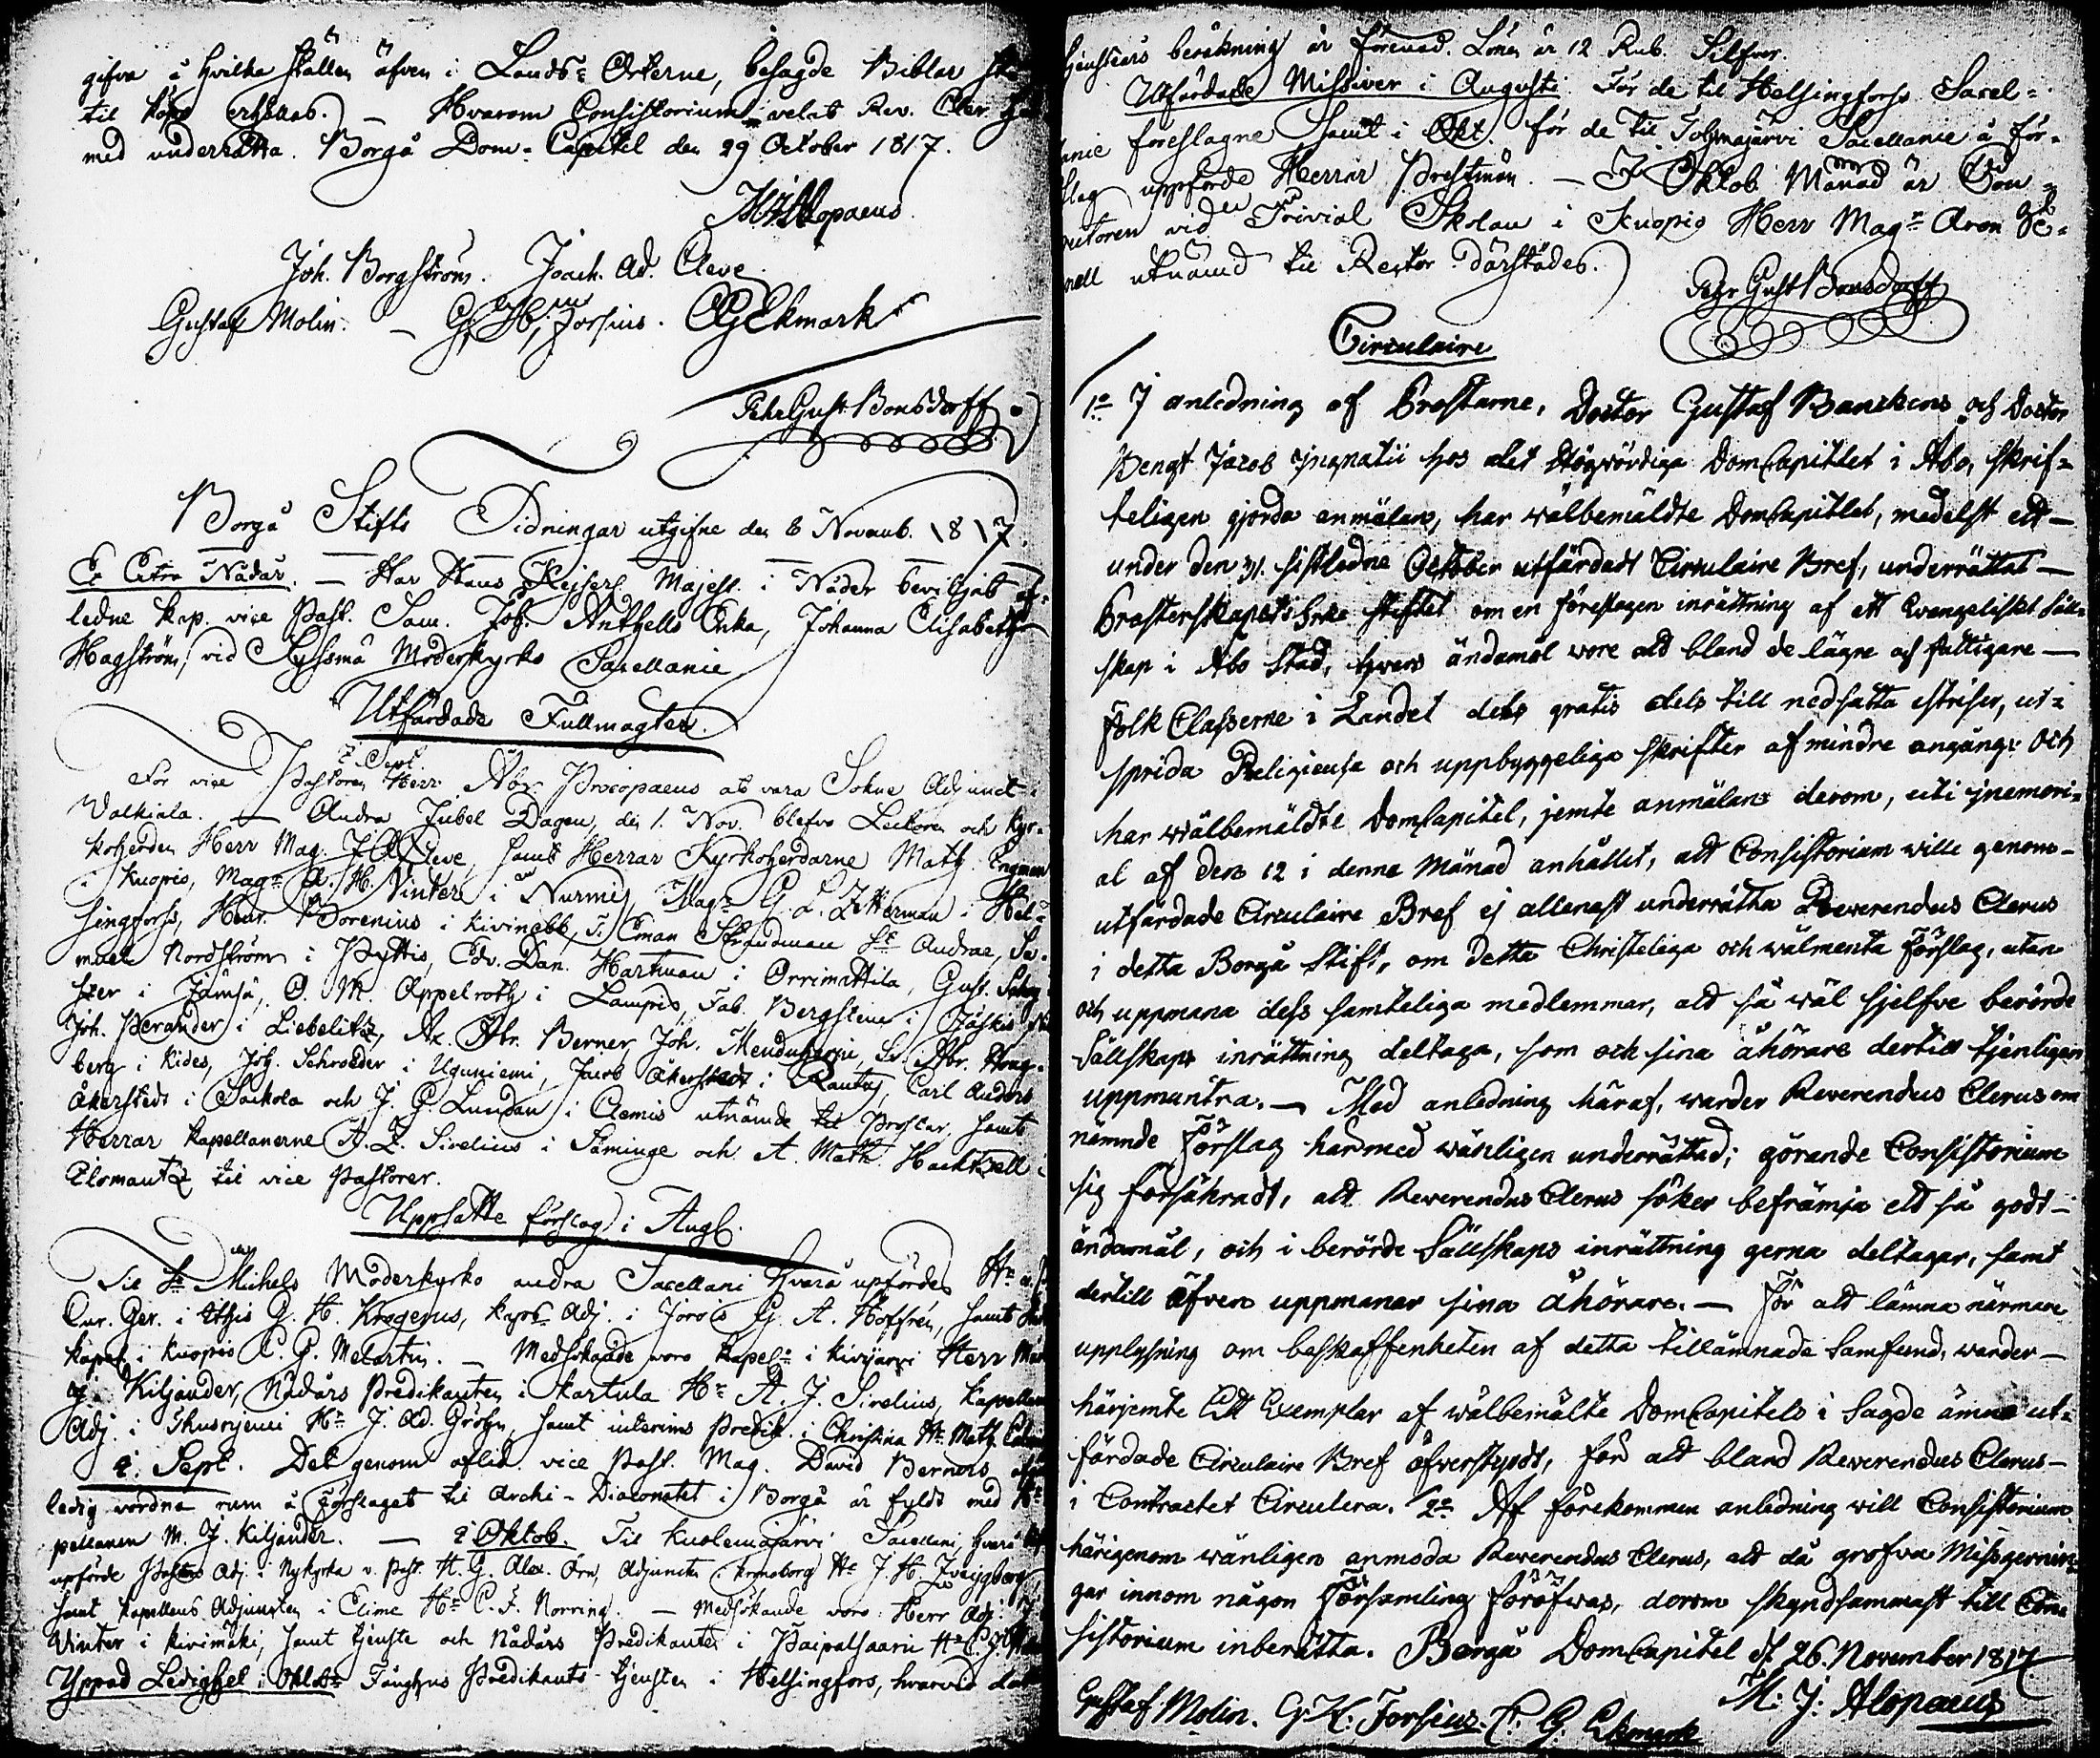 gifva å hvilka ställen äfven i Lands-Orterne, besagde Biblar
til köps erhållas. — Hvarom Consistorium velat Rev. Cler.
med underrätta. Borgå Dom-Capitel den 29 October 1817.
M. J. Alopaeus.
Joh. Borgström. Joach. Ad. Cleve
Gustaf Molin. — G. H. Forsius. C G Ekmark
Pehr Gust Bonsdorff
Borgå Stifts Tidningar utgifne den 8 Novemb. 1817.
Ex Citra Nådår. — Har Hans Kejserl. Majest. i Nåder beviljat af-
ledne Kap. vice Past. Sam. Joh. Anthells Enka, Johanna Elisabeth
Hagström, vid Sysmä Moderkyrko Sacellanie
Utfärdade Fullmagter.
i Sept.
För vice Pastoren Herr Abr. Procopaeus at vara Sokne Adjunct i
Valkiala. — Andra Jubel Dagen, den 1. Nov. blefvo Lectoren och Kyr-
koherden Herr Mag. J A Cleve, samt Herrar Kyrkoherdarne Math. Engman
i Kuopio, Magr A. H. Winter i Nurmis, Magr G. L. Zitterman i Hel-
singfors, Henr. Borenius i Kivinebb, Eman Strandman St Andrae, Sa-
muel Nordström i Pyttis, Edv. Dan. Hartman i Orrimattila, Gust.
i Jämsä, O. M. Appelroth i Lampis, Fab. Bergsteen i Jäskis
Joh. Perander i Liebelitz, Ax. Abr. Berner, Joh. Abr.
berg i Kides, Joh. Schroeder i Uguniemi, Jacob Åkerstedt i Rautus, Carl Anders
Åkerstedt i Sackola och J. G. Lundan i Clemis utnämde til Prostar, samt
Herrar Kapellanerne A. Z. Sirelius i Säminge och A. Math. Hackzell i
Ilomantz til vice Pastorer.
Uppsatte förslag i Aug.
Til St Michels Moderkyrko andra Sacellani hvarå upfördes Hr
Cur. Ger. i Ithis G. H. Krogerus, Kyrk Adj. i Jorois G. A. Hoffrén, samt
Kapel. i Kuopio C. G. Melartin. — Medsökande voro Kapel. i Kivijärvi Herr
Kiljander, Nådårs Predikanten i Kartula Hr A. J. Sirelius, Kapellans
Adj. i Hr J. Ad. samt interims Predik. i Christina Hr Math.
i Sept. Det genom aflid. vice Past. Mag. David Berners
ledig vordna rum å Förslaget til Archi-Diaconatet i Borgå är fyldt med Ka-
pellanen M. J. Kiljander. — i Oktob. Til Kuolemajärvi Sacellani, hvarå
upförde Pastors Adj. i Nykyrka v. Past. H. G. Alex. Orn, Adjuncten i Kronoborg Hr J. H. Zweygberg
samt Kapellans Adjuncten i Elime Hr C. F. Norring. — Medsökande voro: Herr Adj.
Winter i Kivimäki, samt tjenste och Nådårs Predikanten i Paipalsaari Hr
Yppad Ledighet i Oktobr Fånghus Predikants-tjensten i Helsingfors, hvarvid
tjensteårs beräkning är förenad. Lönen är 12 Rub. Silfver.
Utfärdade Missiver i Augusti. För de til Helsingfors Sacel-
lanie föreslagne samt i Okt. för de til Tohmajärvi Sacellanie å för-
slag uppförde Herrar Prestmän. — I Oktob. Månad är Con-
rectoren vid Trivial Skolan i Kuopio Herr Magr Aron
utnämd til Rector därstädes.
Pehr Gust Bonsdorff
Circulaire
1o I anledning af Prostarne, Doctor Gustaf Ranckens och Doctor
Bengt Jacob Ignatii hos det Högwördiga DomCapitlet i Åbo, skrif-
teligen gjorda anmälan, har wälbemäldte DomCapitlet, medelst ett —
under den 31. sistledne October utfärdadt Circulaire Bref, underrättat —
Presterskapet i Erke Stiftet om en föreslagen inrättning af ett Evangeliskt Säll-
skap i Åbo Stad, hwars ändamål wore att bland de lägre och fattigare —
folk Classerne i Landet dels gratis dels till nedsatta priser, ut-
sprida Religieusa och uppbyggeliga skrifter af mindre omgång: Och
har wälbemäldte DomCapitel, jemte anmälan derom, uti inemori-
al af den 12 i denna Månad anhållit, att Consistorium wille genom —
utfärdade Circulaire Bref ej allenast underrätta Reverendus Clerus
i detta Borgå Stift, om detta Christeliga och wälmenta förslag, utan
och uppmana dess samteliga medlemmar, att så wäl sjelfve berörde
Sällskaps inrättning deltaga, som och sina åhörare dertill tjenligen
uppmuntra. — Med anledning häraf, warder Reverendus Clerus om
nämnde Förslag härmed wänligen underrättad; görande Consistorium
sig försäkradt, att Reverendus Clerus söker befrämja ett så godt —
ändamål, och i berörde Sällskaps inrättning gerna deltagar, samt
dertill äfven uppmanar sina åhörare. — För att lämna närmare
upplysning om beskaffenheten af detta tillämnade Samfund, warder —
härjemte Ett Exemplar af wälbemälte DomCapitels i sagde ämne ut-
färdade Circulaire Bref öfverstyrdt, för att bland Reverendus Clerus —
i Contractet Circulera. 2o Af förekommen anledning will Consistorium
härigenom wänligen anmoda Reverendus Clerus, att då grofva Missgernin-
gar innom någon Församling föröfwas, derom skyndsammast till Con-
sistorium inberätta. Borgå DomCapitel d. 26. November 1817.
M: J: Alopaeus
Gustaf Molin. G: H: Forsius. C: G: Ekmark